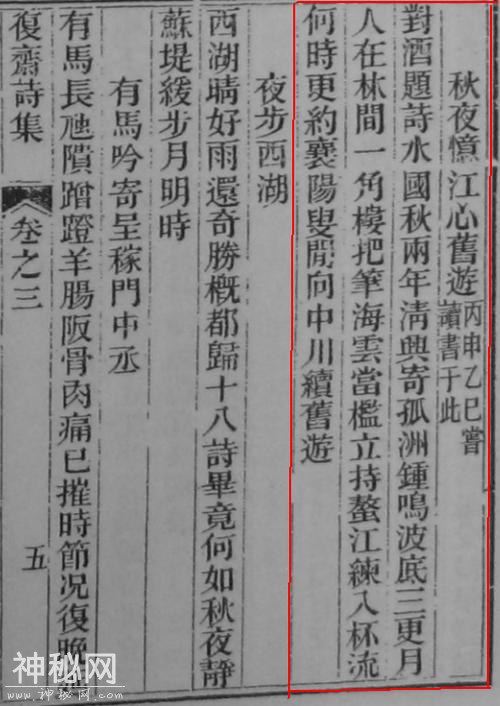 秋夜憶江心舊遊丙申乙巳嘗
讀書于此
對酒題詩水國秋兩年清興寄孤洲鍾鳴波底三更月
人在林間一角樓把筆海雲當檻立持螯江練入杯流
何時更約襄陽叟閒向中川續舊遊
夜步西湖
西湖晴好雨還奇勝概都歸十八詩畢竟何如秋夜靜
蘇堤緩步月明時
有馬吟寄呈稼門中丞
有馬長虺隤蹭蹬羊腸阪骨肉痛已摧時節况復晚
復齋詩集
卷之三
五
神秘网
www.zgsmw.com